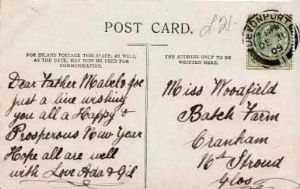 POST CARD.
22.
FOR INLAND POSTAGE THIS SPACE, AS WELL
AS THE BACK, MAY NOW BE USED FOR
COMMUNICATION.
THE ADDRESS ONLY TO BE
WRITTEN HERE.
DEVONPORT
09
Dear Father Mabel & Joe
just a line wishing
you all a Happy &
Prosperous New Year
Hope all are well
with Love Ada & Gil
Miss Woodfield
Batch Farm
Cranham
Nr Stroud
Glos.